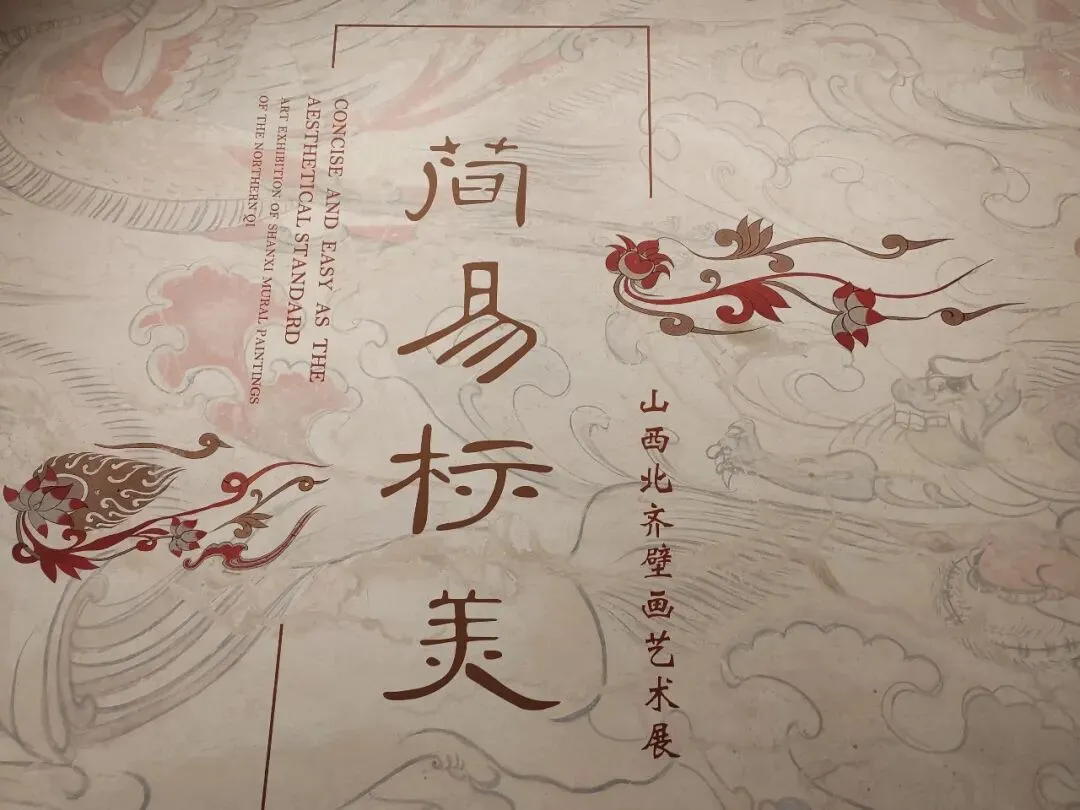 山西北齐壁画艺术展
简易标美
CONCISE AND EASY AS THE
AESTHETICAL STANDARD
ART EXHIBITION OF SHANXI MURAL PAINTINGS
OF THE NORTHERN QI